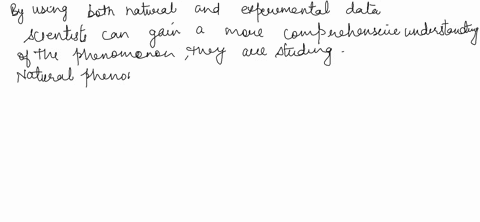 By using both natural and experemental data
scientists can gain a more comprehensive understanding
of the phenomenon, they are studing.
Natural pheno